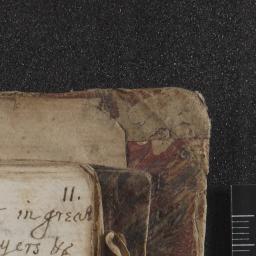 11.
in great
yers by